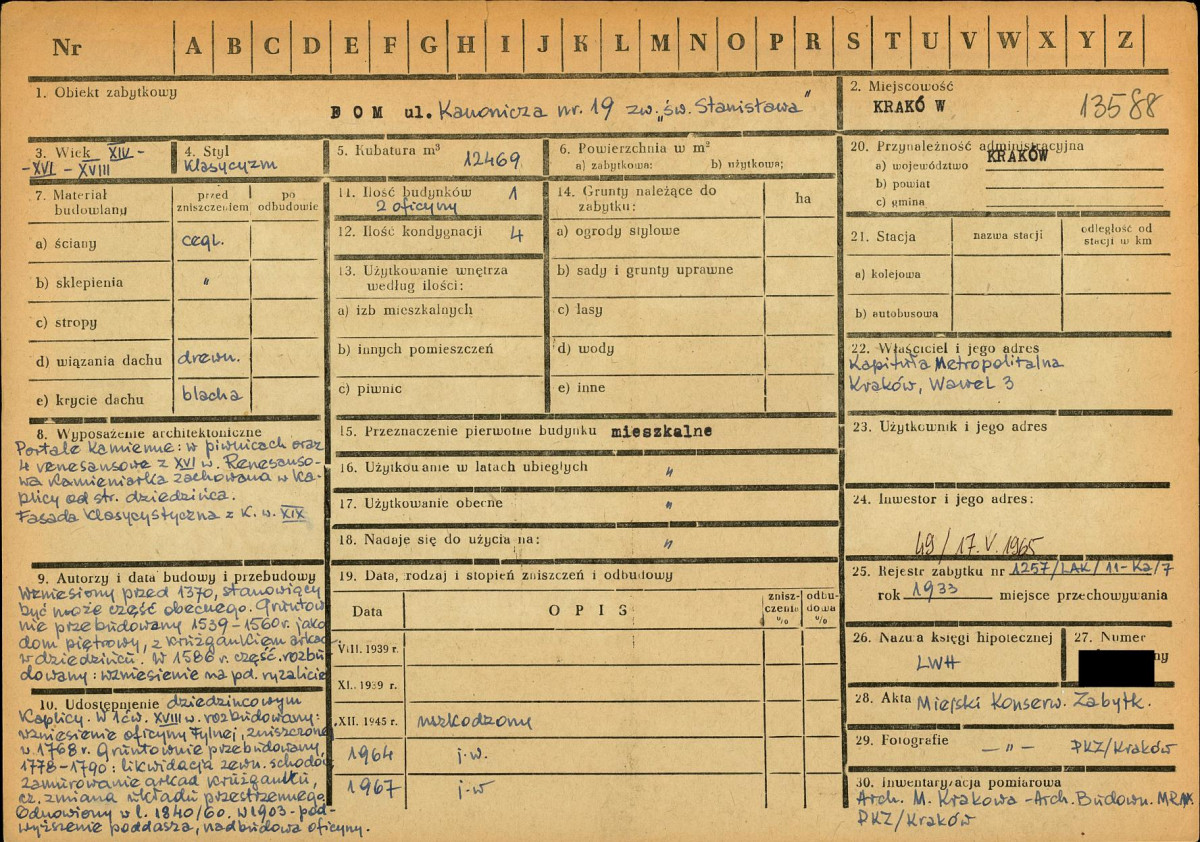 Nr A B C D E F G H I J K L M N O P R S T U V W X Y Z
1. Obiekt zabytkowy
DOM ul. Kanonicza nr. 19 zw. „św. Stanisława"
2. Miejscowość
KRAKÓW 13588
3. Wiek XIV -
- XVI - XVIII
4. Styl
Klasycyzm
5. Kubatura m³ 12469
6. Powierzchnia w m²
a) zabytkowa: b) użytkowa:
7. Materiał budowlany
przed zniszczeniem
po odbudowie
a) ściany cegl.
b) sklepienia "
c) stropy
d) wiązania dachu drewn.
e) krycie dachu blacha
8. Wyposażenie architektoniczne
Portale kamienne: w piwnicach oraz
4 renesansowe z XVI w. Renesanso-
wa kamieniarka zachowana w ka-
plicy od str. dziedzińca.
Fasada klasycystyczna z k. w. XIX
9. Autorzy i data budowy i przebudowy
Wzniesiony przed 1370, stanowiący
być może część obecnego. Gruntow
nie przebudowany 1539-1560 r. jako
dom piętrowy, z krużgankiem arkad
w dziedzińcu. W 1586 r. część rozbu
dowany: wzniesienie na pd. ryzalicie
10. Udostępnienie dziedzińcowym
Kaplicy. W 1 ćw. XVIII w. rozbudowany:
wzniesienie oficyny tylnej, zniszczone
w 1768 r. Gruntownie przebudowany,
1778-1790: likwidacja zewn. schodów
zamurowanie arkad krużganku,
cz. zmiana układu przestrzennego
Odnowiony w l. 1840/60. w 1903 - pod-
wyższenie poddasza, nadbudowa oficyny.
11. Ilość budynków 1
2 oficyny
12. Ilość kondygnacji 4
13. Użytkowanie wnętrza
według ilości:
a) izb mieszkalnych
b) innych pomieszczeń
c) piwnic
14. Grunty należące do
zabytku:
ha
a) ogrody stylowe
b) sady i grunty uprawne
c) lasy
d) wody
e) inne
15. Przeznaczenie pierwotne budynku mieszkalne
16. Użytkowanie w latach ubiegłych "
17. Użytkowanie obecne "
18. Nadaje się do użycia na: "
19. Data, rodzaj i stopień zniszczeń i odbudowy
Data OPIS znisz-czenie % odbu-dowa %
VIII. 1939 r.
XI. 1939 r.
XII. 1945 r. uszkodzony
1964 j.w.
1967 j.w
20. Przynależność administracyjna
a) województwo KRAKÓW
b) powiat
c) gmina
21. Stacja
nazwa stacji
odległość od stacji w km
a) kolejowa
b) autobusowa
22. Właściciel i jego adres
Kapituła Metropolitalna
Kraków, Wawel 3
23. Użytkownik i jego adres
24. Inwestor i jego adres:
49/17.V.1965
25. Rejestr zabytku nr 1257/LAK/11-Ka/7
rok 1933 miejsce przechowywania
26. Nazwa księgi hipotecznej
LWH
27. Numer
ny
28. Akta Miejski Konserw. Zabytk.
29. Fotografie — " — PKZ/Kraków
30. Inwentaryzacja pomiarowa
Arch. M. Krakowa - Arch. Budown. MRN
PKZ/Kraków